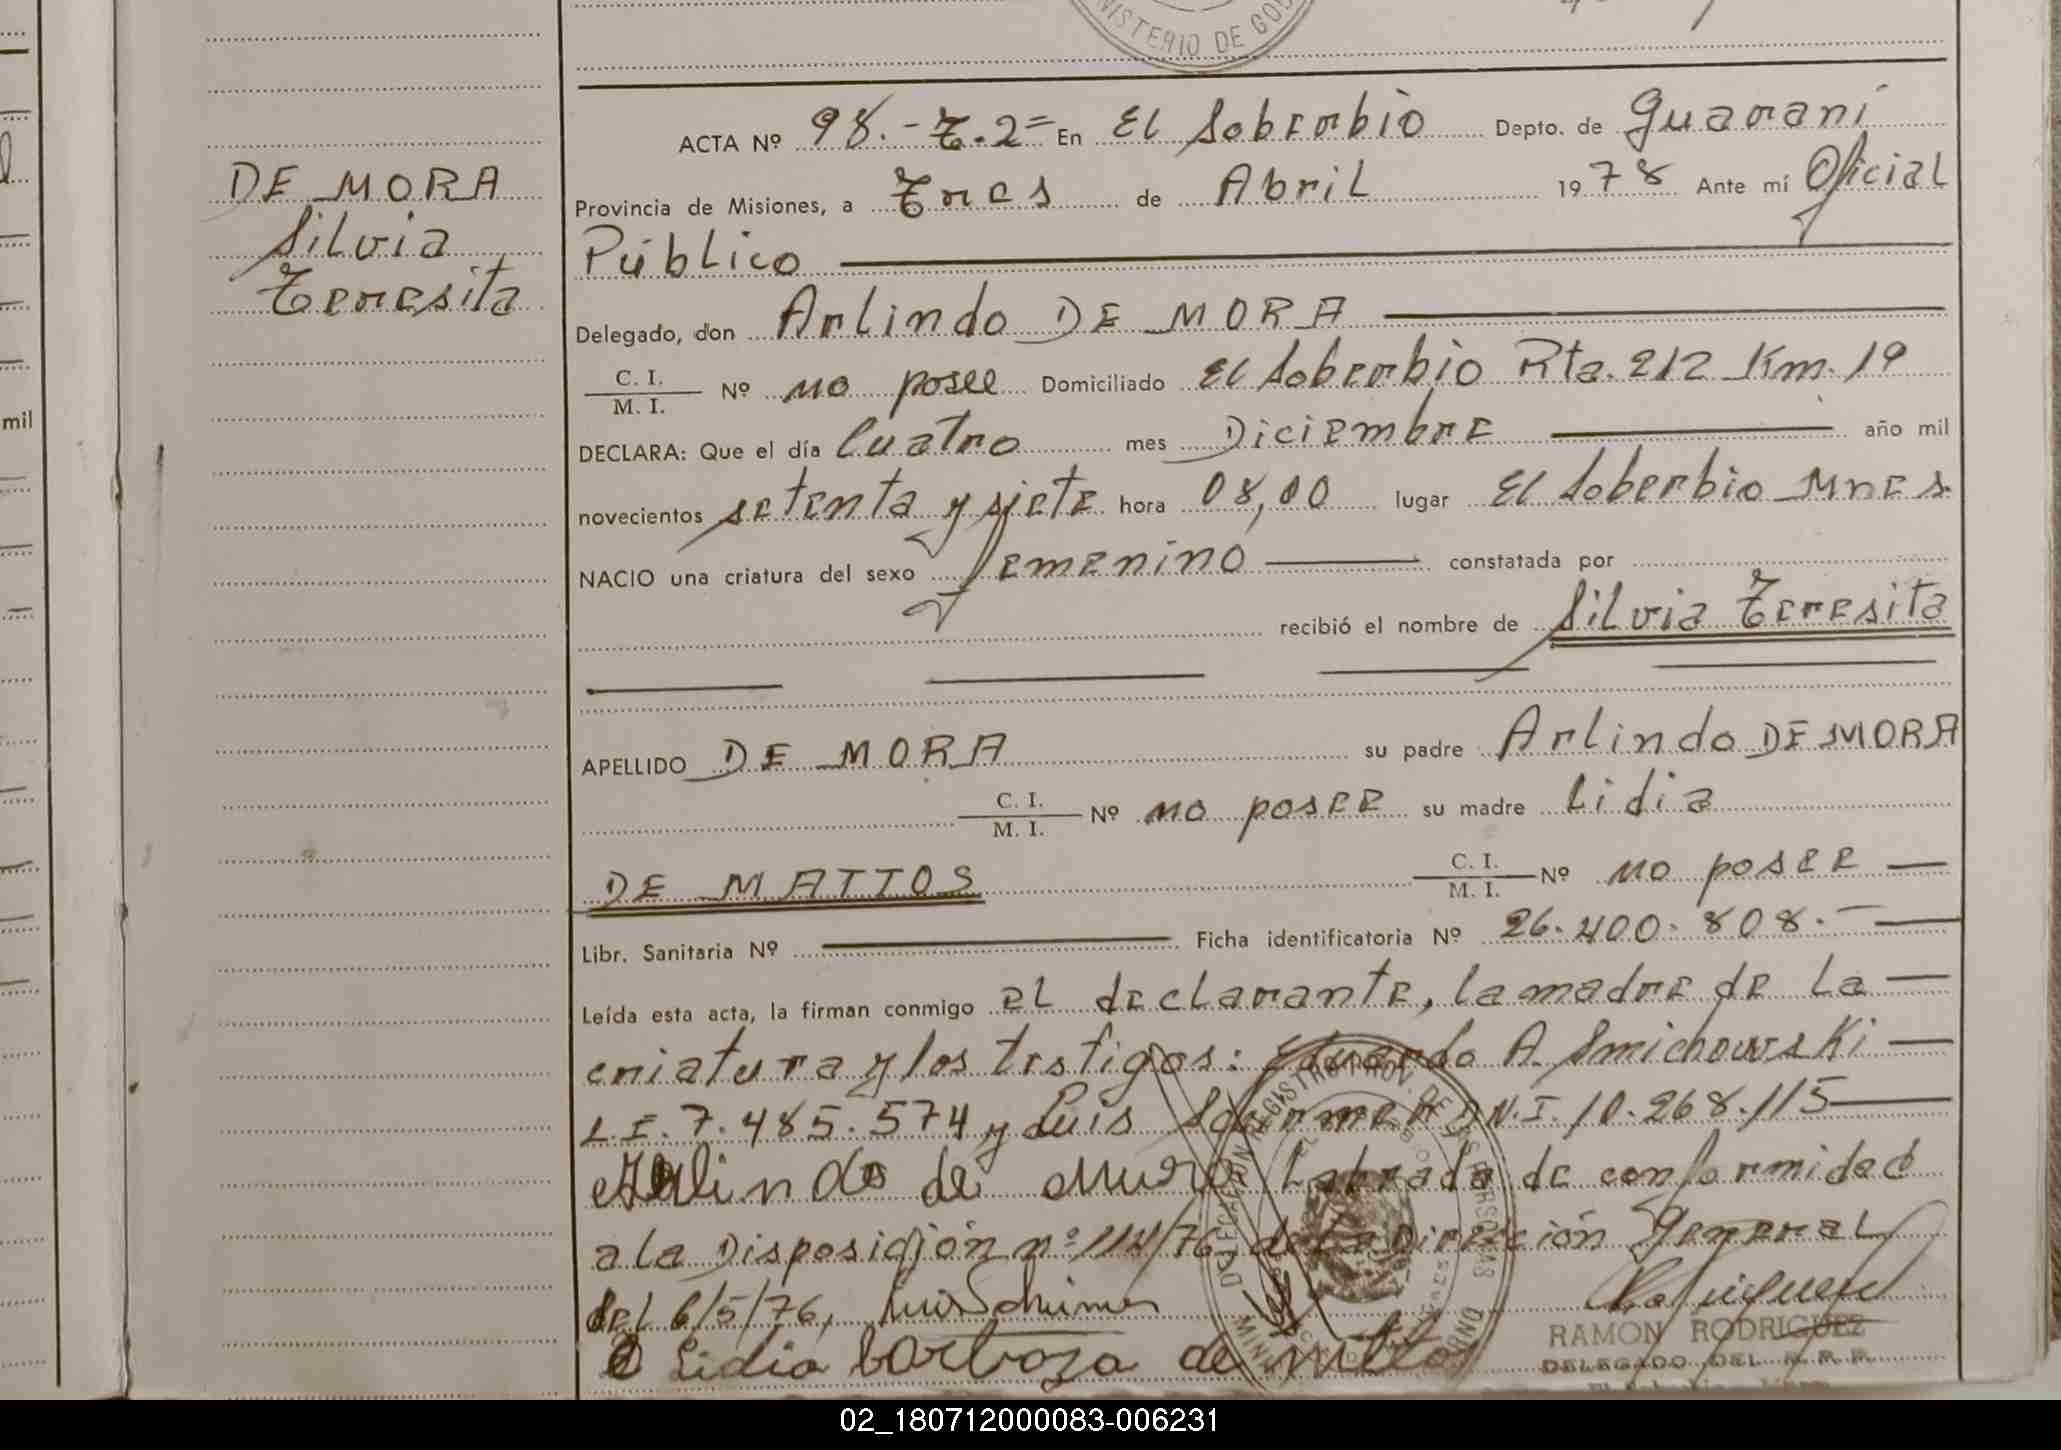 MINISTERIO DE GOB
DE MORA
Silvia
Teresita
mil
ACTA Nº 98.- T.2= En El Soberbio Depto. de Guaraní
Provincia de Misiones, a Tres de Abril 1978 Ante mí Oficial
Público
Delegado, don Arlindo DE MORA
C. I. / M. I. Nº no posee Domiciliado El Soberbio Rta. 212 Km. 19
DECLARA: Que el día Cuatro mes Diciembre año mil
novecientos setenta y siete hora 08,00 lugar El Soberbio Mnes.
NACIO una criatura del sexo femenino constatada por
recibió el nombre de Silvia Teresita
APELLIDO DE MORA su padre Arlindo DE MORA
C. I. / M. I. Nº no posee su madre Lidia
DE MATTOS C. I. / M. I. Nº no posee
Libr. Sanitaria Nº Ficha identificatoria Nº 26.400.808.-
Leída esta acta, la firman conmigo el declarante, la madre de la
criatura y los testigos: Eduardo A. Smichowski
L.E. 7.485.574 y Luis D.N.I. 10.268.115
Arlindo de Labrada de conformidad
a la Disposición nº 114/76 de la Dirección General
del 6/5/76,
Lidia barboza de
RAMON RODRIGUEZ
DELEGADO DEL R.P.P.
02_180712000083-006231